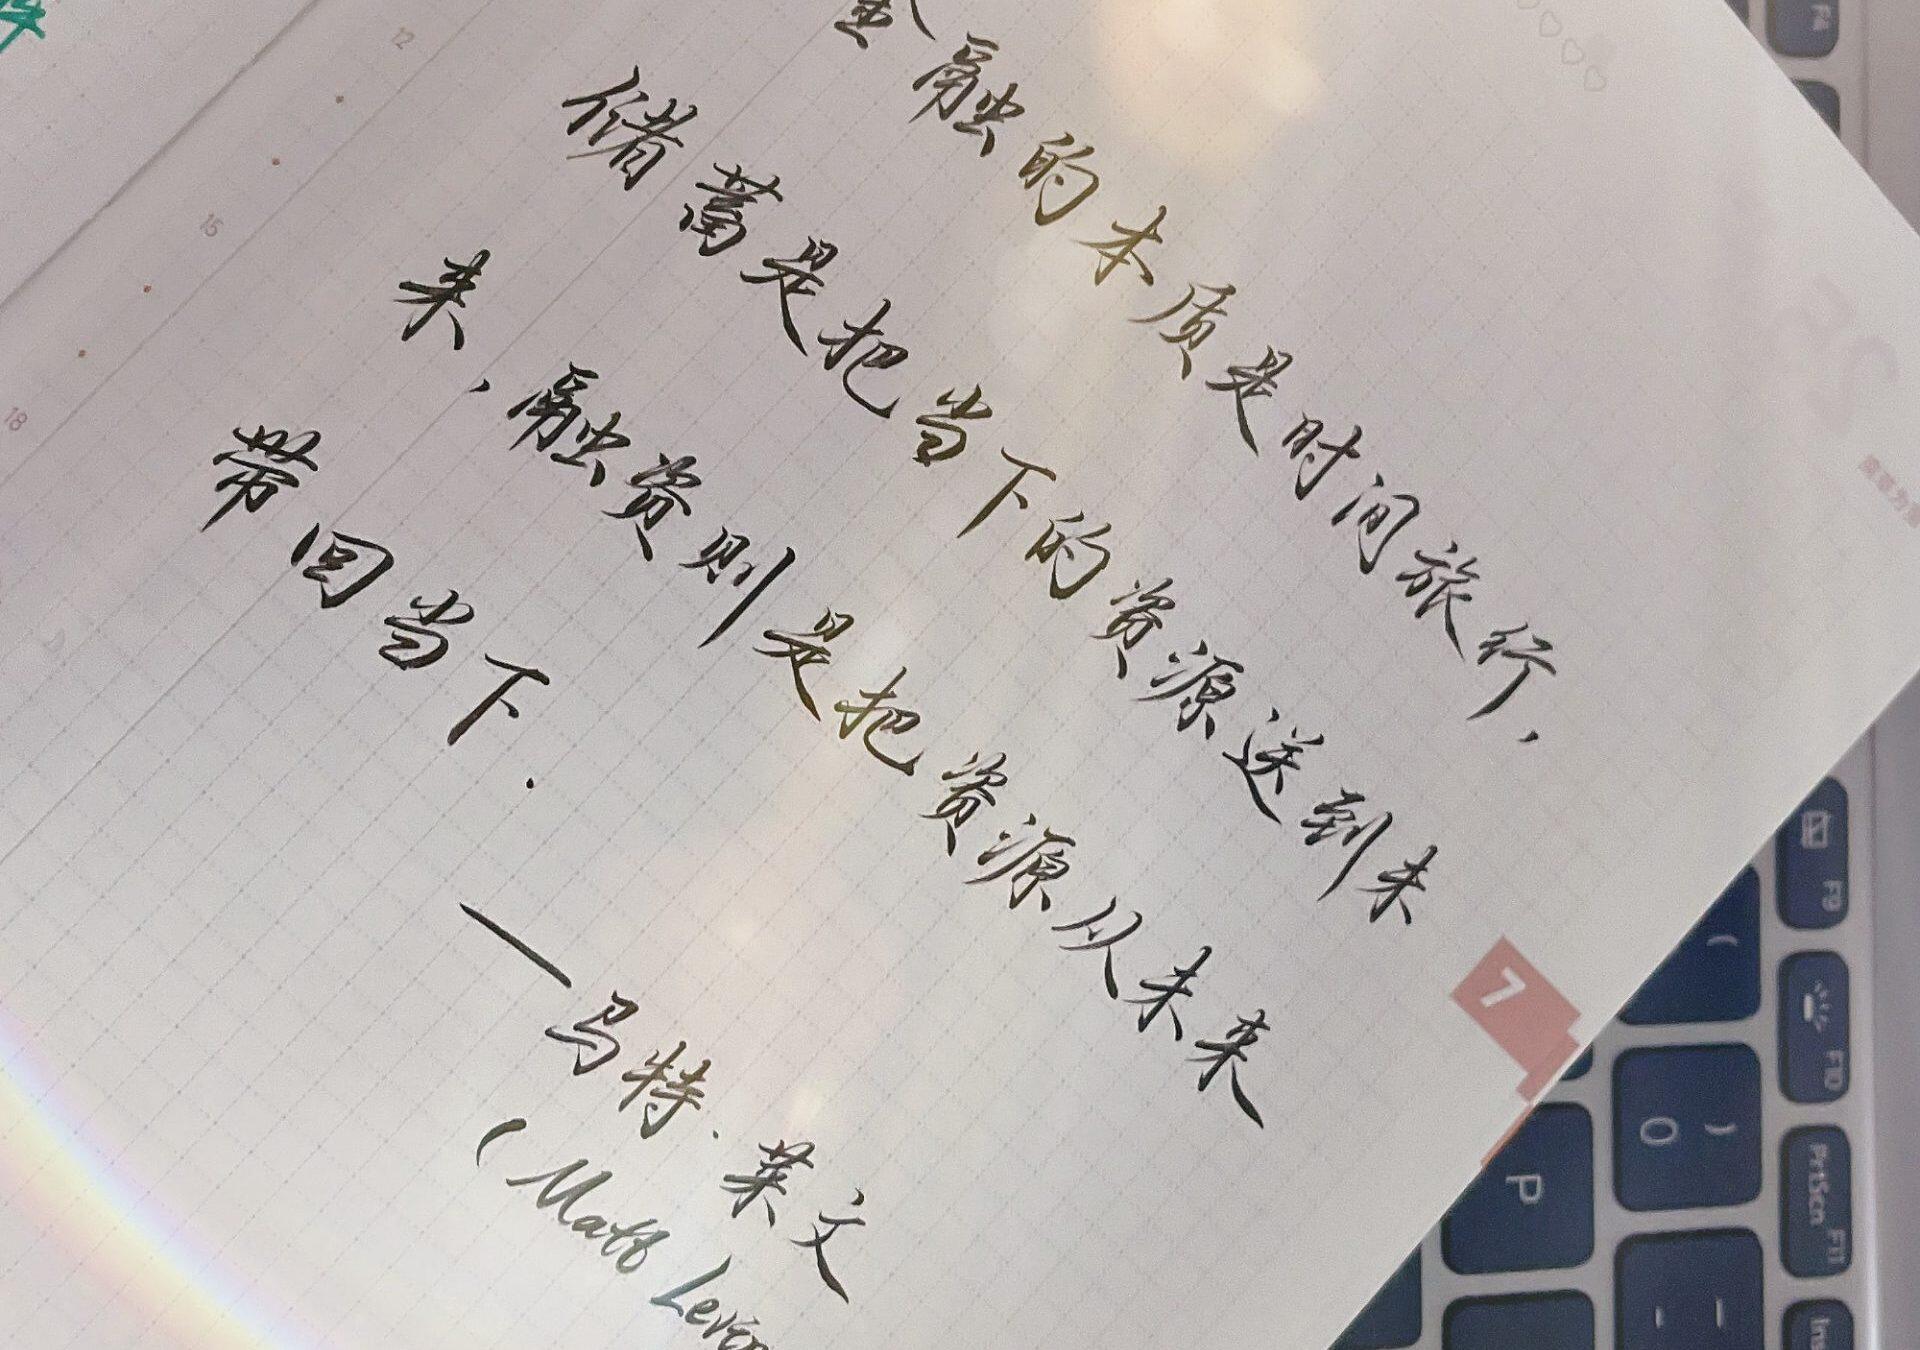 金融的本质是时间旅行,
储蓄是把当下的资源送到未
来,融资则是把资源从未来
带回当下.
—马特·莱文
(Matt Levin
12
15
18
7
F4
F9
F10
PrtScn F11
Ins
(
) 0
P